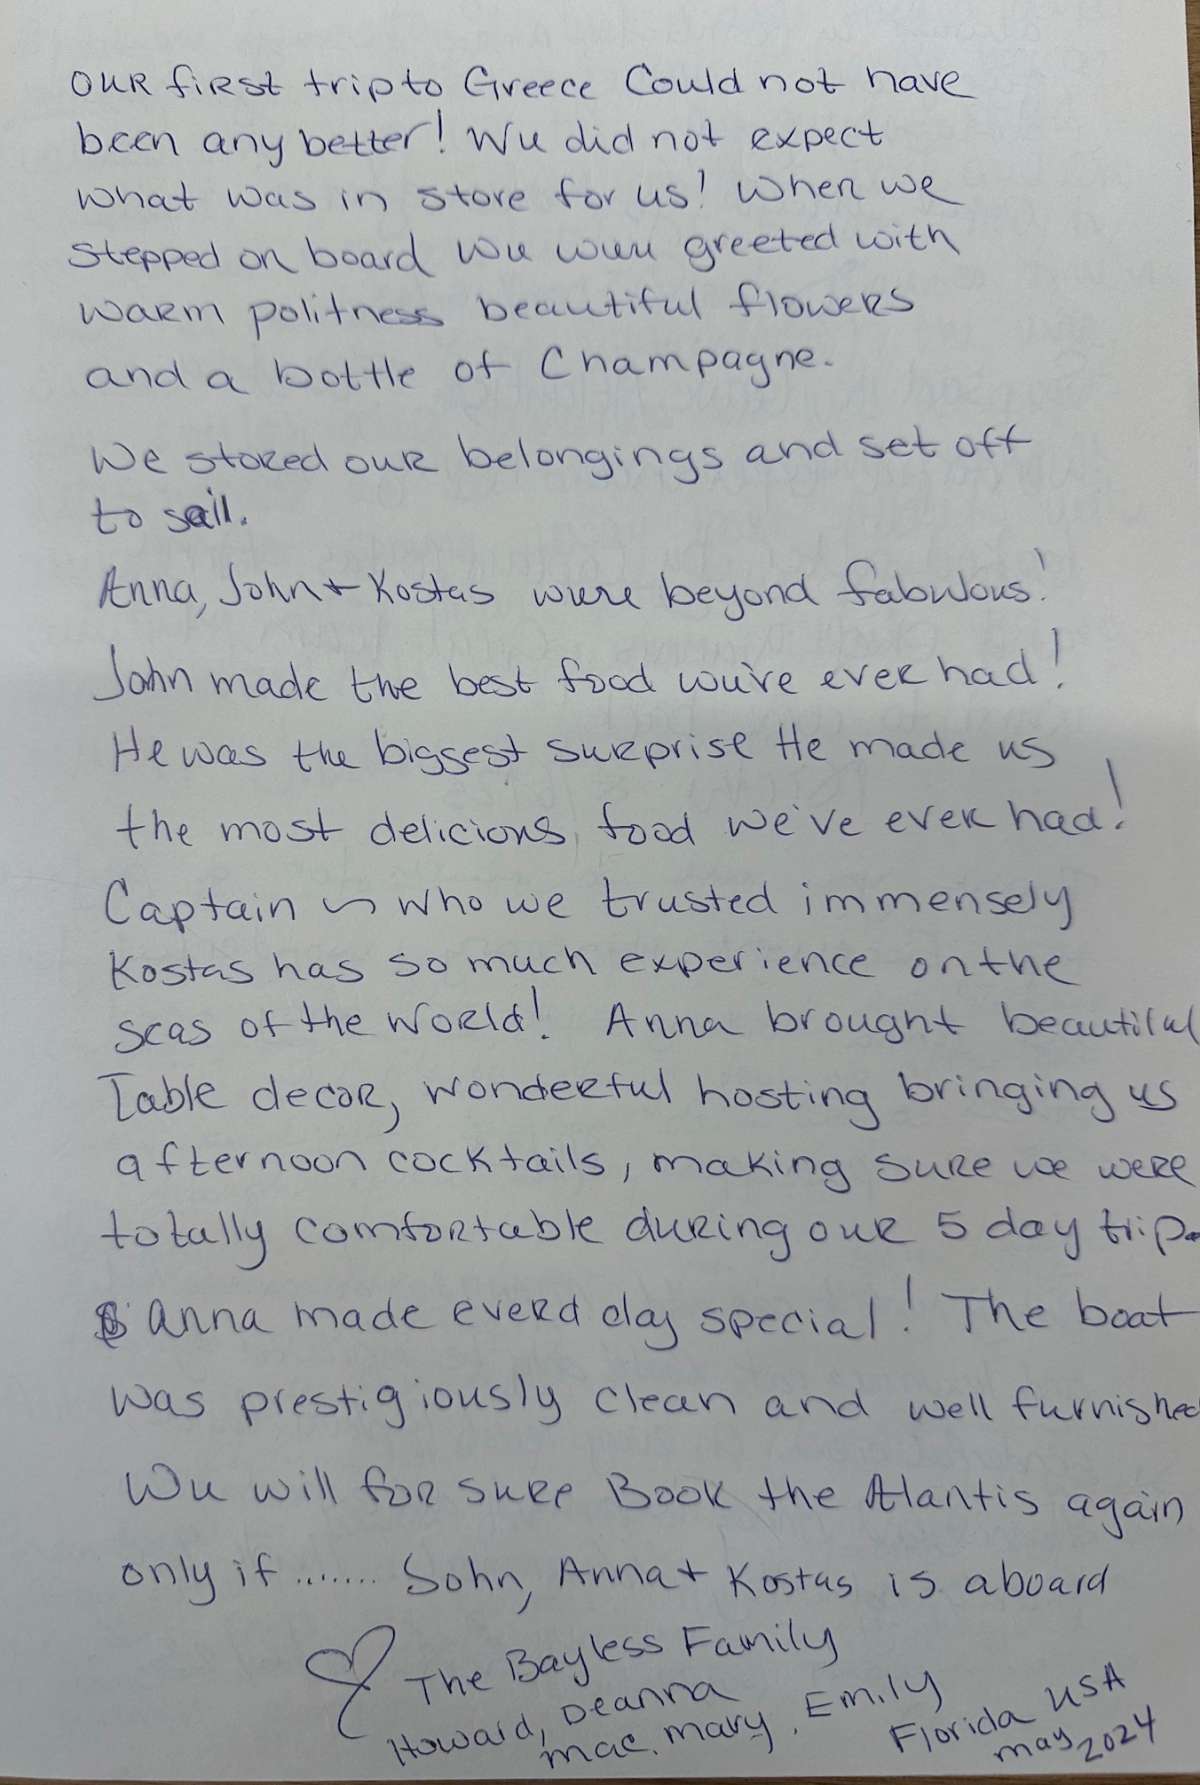 OUR first trip to Greece Could not have
been any better! We did not expect
what was in store for us! When we
stepped on board we were greeted with
warm politness beautiful flowers
and a bottle of Champagne.
We stored our belongings and set off
to sail.
Anna, John + Kostas were beyond fabulous!
John made the best food we've ever had!
He was the biggest surprise He made us
the most delicious food we've ever had!
Captain ~ who we trusted immensely
Kostas has so much experience on the
seas of the World! Anna brought beautiful
Table decor, wonderful hosting bringing us
afternoon cocktails, making sure we were
totally comfortable during our 5 day trip.
Anna made everd day special! The boat
was prestigiously clean and well furnished
We will for sure Book the Atlantis again
only if ....... John, Anna + Kostas is aboard
The Bayless Family
Howard, Deanna
mac, mary, Emily
Florida USA
may 2024